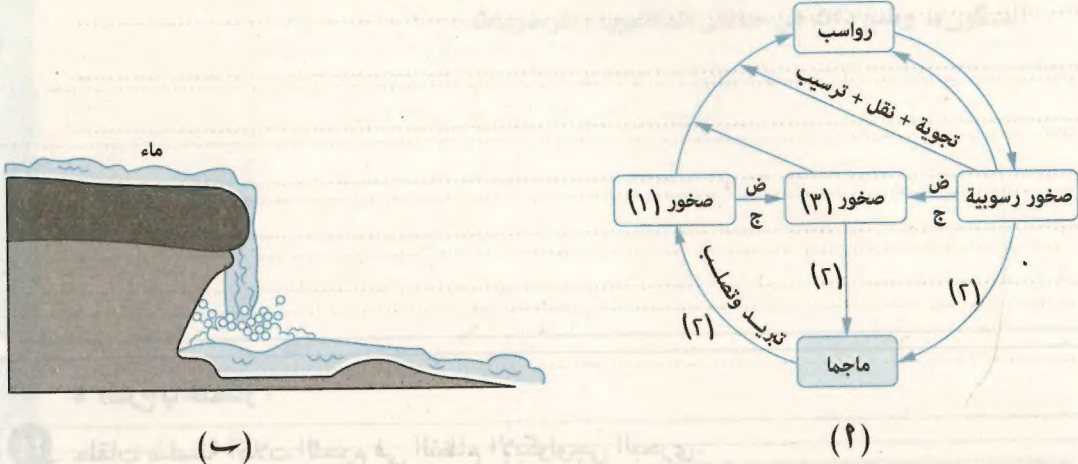 رواسب
تجوية + نقل + ترسيب
ماء
صخور رسوبية
ض
ج
صخور (٣)
ض
ج
صخور (١)
(٢)
(٢)
تبريد وتصلب
(٢)
ماجما
(أ)
(ب)